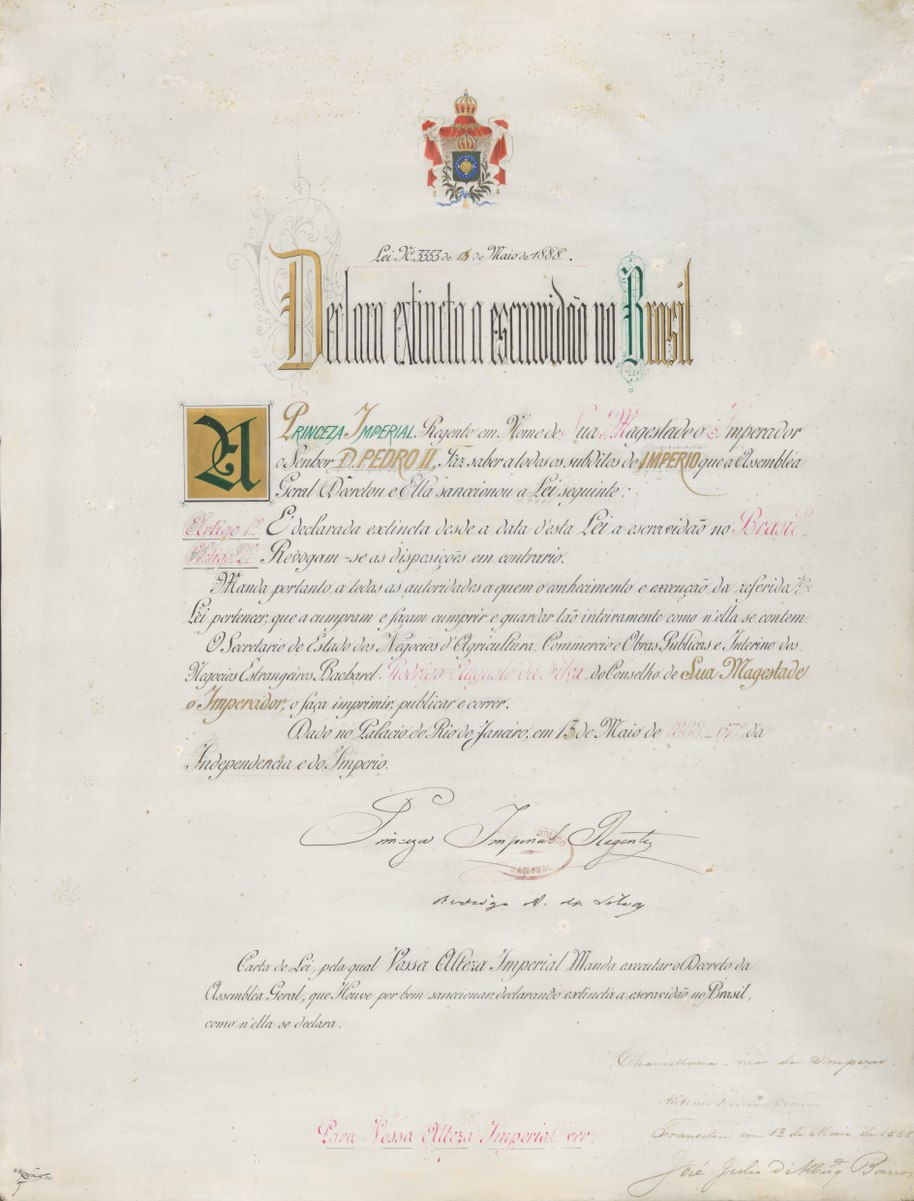 Lei Nº 3353 de 13 de Maio de 1888.
Declara extincta a escravidão no Brasil
A PRINCEZA IMPERIAL Regente em Nome de Sua Magestade o Imperador
o Senhor D. PEDRO II, Faz saber a todos os subditos do IMPERIO que a Assembléa
Geral Decretou e Ella sanccionou a Lei seguinte:
Artigo 1º É declarada extincta desde a data d'esta Lei a escravidão no Brasil.
Artigo 2º Revogam-se as disposições em contrario.
Manda portanto a todas as autoridades a quem o conhecimento e execução da referida
Lei pertencer, que a cumpram e façam cumprir e guardar tão inteiramente como n'ella se contem.
O Secretario de Estado dos Negocios d'Agricultura, Commercio e Obras Publicas e Interino dos
Negocios Estrangeiros Bacharel Rodrigo Augusto da Silva, do Conselho de Sua Magestade
o Imperador, o faça imprimir, publicar e correr.
Dado no Palacio do Rio de Janeiro, em 13 de Maio de 1888 – 67º da
Independencia e do Imperio.
Princeza Imperial Regente
Rodrigo A. da Silva
Carta de Lei, pela qual Vossa Alteza Imperial Manda executar o Decreto da
Assembléa Geral, que Houve por bem sanccionar, declarando extincta a escravidão no Brasil,
como n'ella se declara.
Chancellaria-mor do Imperio
Antonio
Transitou em 13 de Maio de 1888
José Julio d'Albuqº Barros
Para Vossa Alteza Imperial ver.